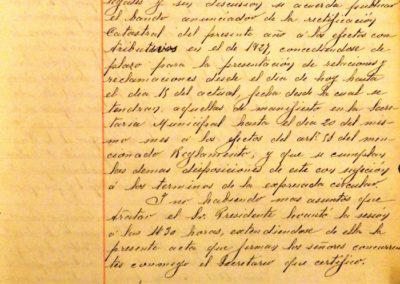 legales y sin discusión se acuerda publicar
el bando anunciador de la rectificación
Catastral del presente año á los efectos con
tributivos en el de 1927, concediéndose de
plazo para la presentación de relaciones y
reclamaciones desde el dia de hoy hasta
el dia 15 del actual, fecha desde la cual se
tendran aquellas de manifiesto en la Secre
taria Municipal hasta el dia 20 del mis
mo mes á los efectos del artº 51 del men
cionado Reglamento, y que se cumplan
las demas disposiciones de este con sujecion
á los terminos de la expresada circular.
Y no habiendo mas asuntos que
tratar el Sr. Presidente levantó la sesión
á las horas, extendiendose de ella la
presente acta que firman los señores concurren
tes conmigo el Secretario que certifico.